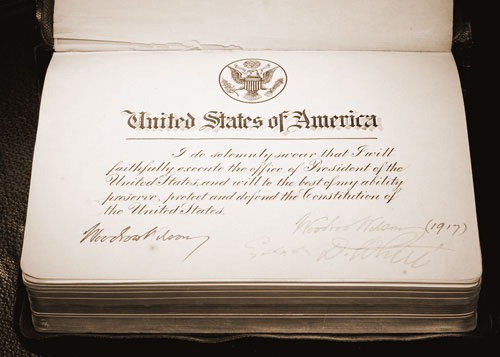 United States of America
I do solemnly swear that I will
faithfully execute the office of President of the
United States, and will to the best of my ability
preserve, protect and defend the Constitution of
the United States.
Woodrow Wilson
Woodrow Wilson (1917)